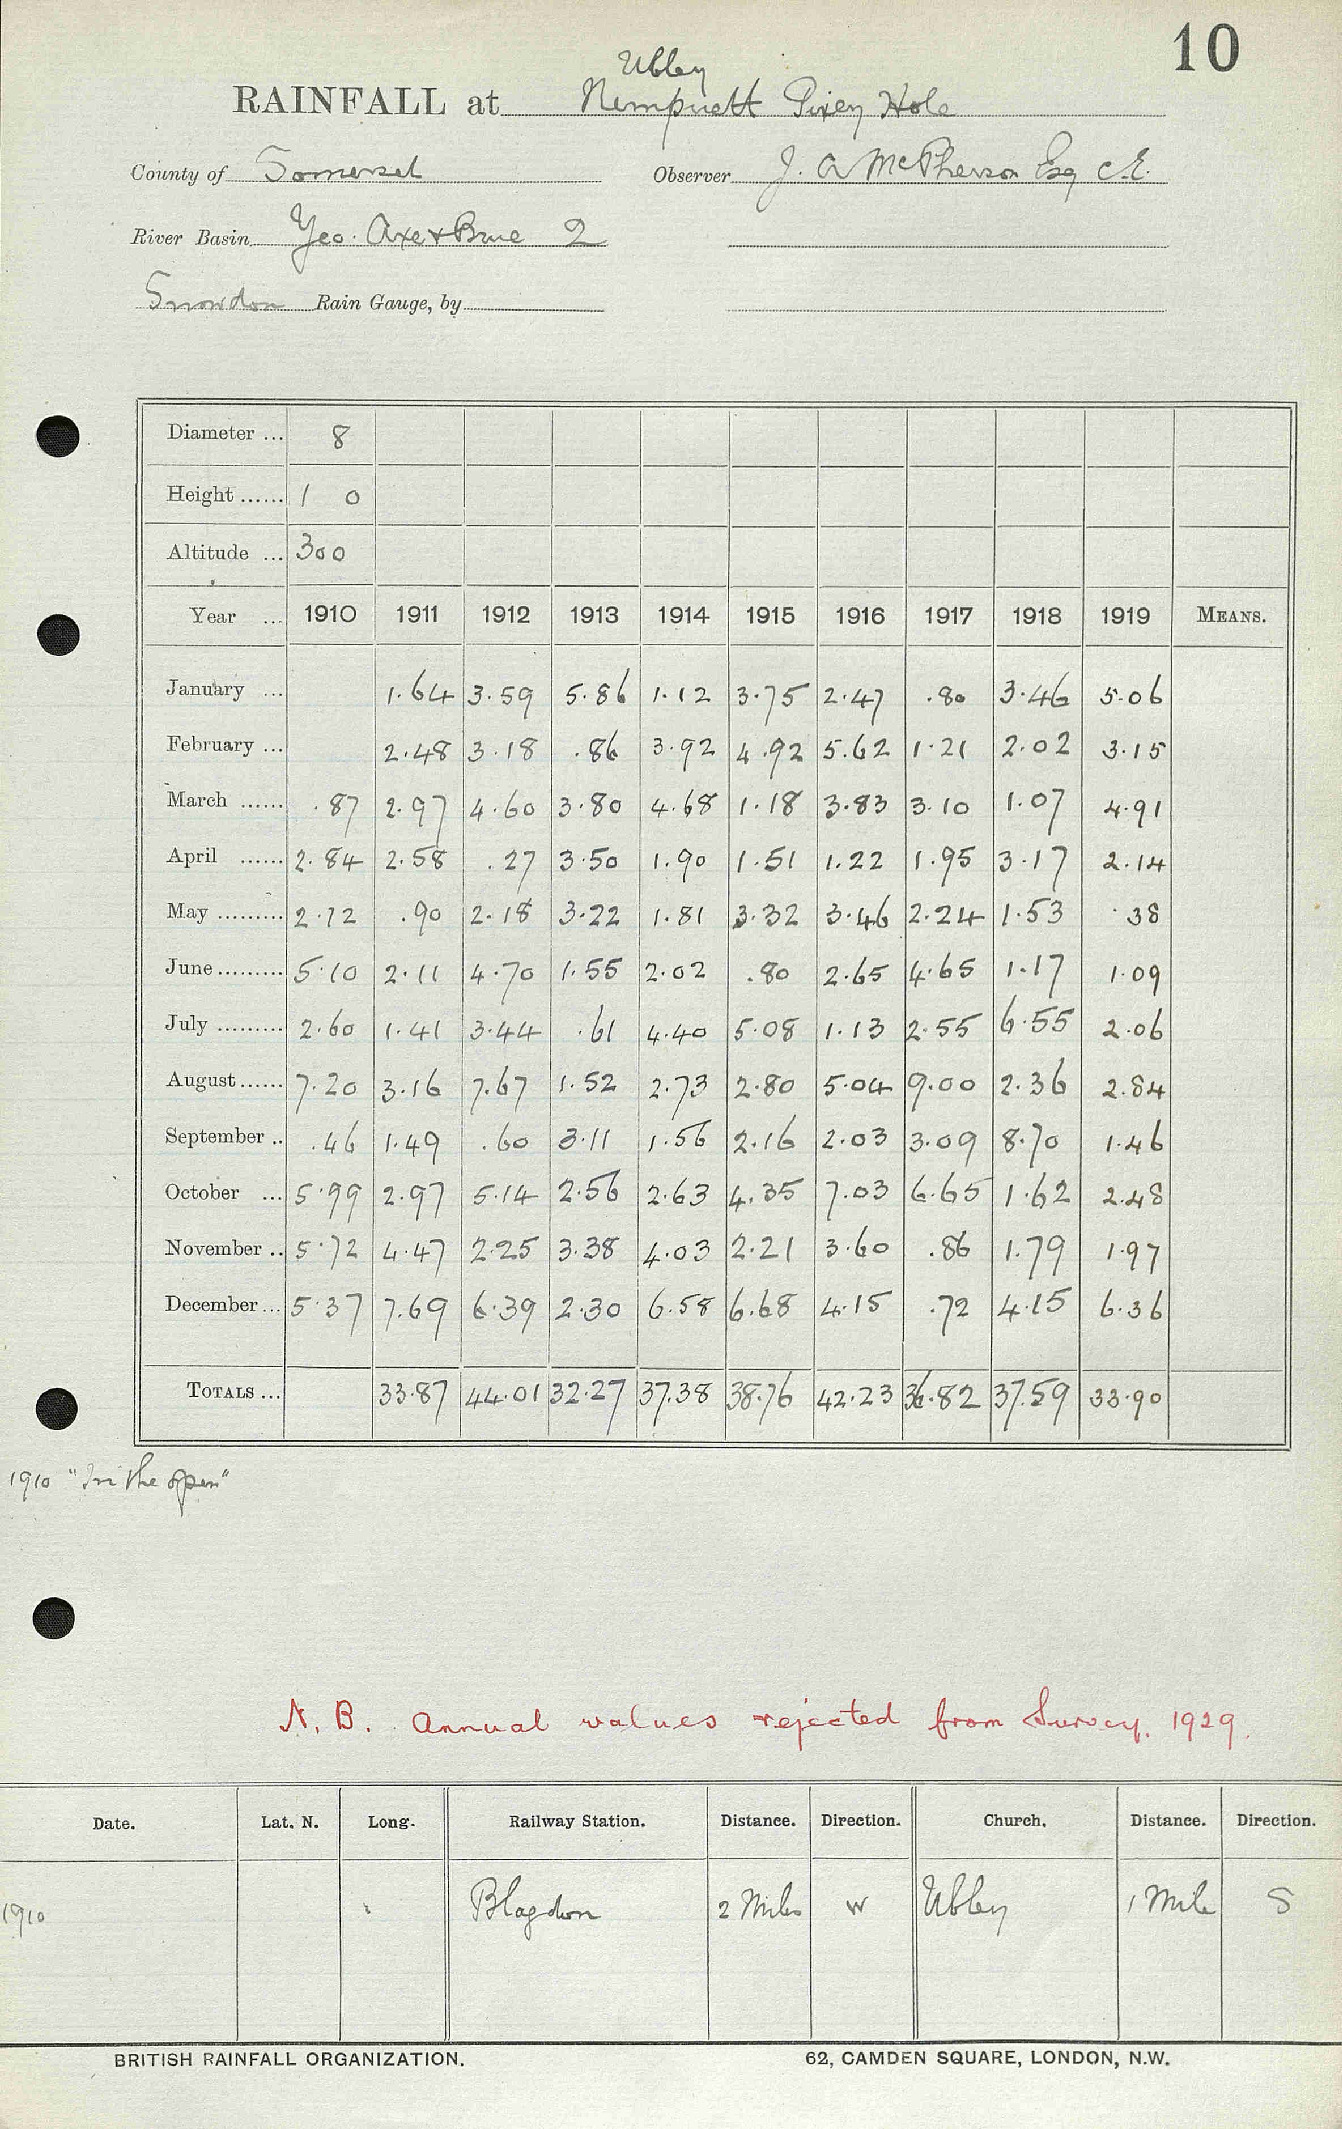 10
Ubley
RAINFALL at Nempnett Pixey Hole
County of Somerset Observer J. A McPherson Esq C.E.
River Basin Yeo. Axe & Brue 2
Snowdon Rain Gauge, by
Diameter ... 8
Height ...... 1 0
Altitude ... 300
Year ... 1910 1911 1912 1913 1914 1915 1916 1917 1918 1919 MEANS.
January ... 1.64 3.59 5.86 1.12 3.75 2.47 .80 3.46 5.06
February ... 2.48 3.18 .86 3.92 4.92 5.62 1.21 2.02 3.15
March ...... .87 2.97 4.60 3.80 4.68 1.18 3.83 3.10 1.07 4.91
April ...... 2.84 2.58 .27 3.50 1.90 1.51 1.22 1.95 3.17 2.14
May ......... 2.72 .90 2.18 3.22 1.81 3.32 3.46 2.24 1.53 .38
June ......... 5.10 2.11 4.70 1.55 2.02 .80 2.65 4.65 1.17 1.09
July ......... 2.60 1.41 3.44 .61 4.40 5.08 1.13 2.55 6.55 2.06
August ...... 7.20 3.16 7.67 1.52 2.73 2.80 5.04 9.00 2.36 2.84
September .. .46 1.49 .60 3.11 1.56 2.16 2.03 3.09 8.70 1.46
October ... 5.99 2.97 5.14 2.56 2.63 4.35 7.03 6.65 1.62 2.48
November .. 5.72 4.47 2.25 3.38 4.03 2.21 3.60 .86 1.79 1.97
December ... 5.37 7.69 6.39 2.30 6.58 6.68 4.15 .72 4.15 6.36
TOTALS ... 33.87 44.01 32.27 37.38 38.76 42.23 36.82 37.59 33.90
1910 "In the open"
N.B. Annual values rejected from Survey. 1929.
Date. Lat. N. Long. Railway Station. Distance. Direction. Church. Distance. Direction.
1910 Blagdon 2 Miles W Ubley 1 Mile S
BRITISH RAINFALL ORGANIZATION. 62, CAMDEN SQUARE, LONDON, N.W.